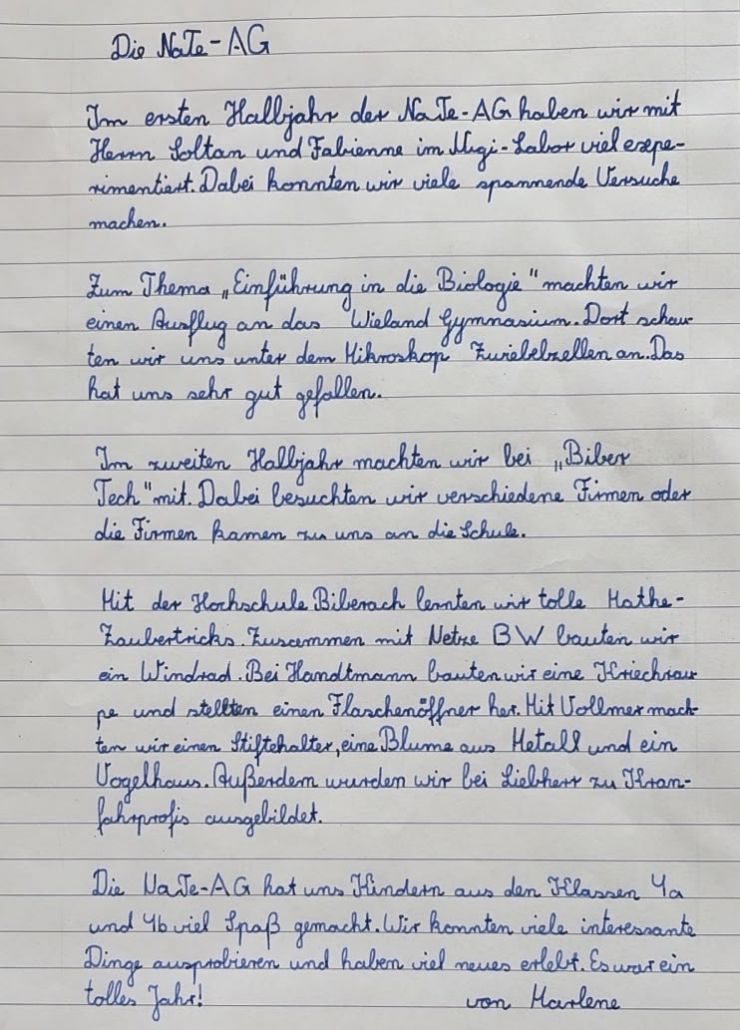 Die NaTe-AG
Im ersten Halbjahr der NaTe-AG haben wir mit
Herrn Soltan und Fabienne im Migi-Labor viel expe-
rimentiert. Dabei konnten wir viele spannende Versuche
machen.
Zum Thema „Einführung in die Biologie" machten wir
einen Ausflug an das Wieland Gymnasium. Dort schau-
ten wir uns unter dem Mikroskop Zwiebelzellen an. Das
hat uns sehr gut gefallen.
Im zweiten Halbjahr machten wir bei „Biber
Tech" mit. Dabei besuchten wir verschiedene Firmen oder
die Firmen kamen zu uns an die Schule.
Mit der Hochschule Biberach lernten wir tolle Mathe-
Zaubertricks. Zusammen mit Netze BW bauten wir
ein Windrad. Bei Handtmann bauten wir eine Kriechrau
pe und stellten einen Flaschenöffner her. Mit Vollmer mach-
ten wir einen Stiftehalter, eine Blume aus Metall und ein
Vogelhaus. Außerdem wurden wir bei Liebherr zu Kran-
fahrprofis ausgebildet.
Die NaTe-AG hat uns Kindern aus den Klassen 4a
und 4b viel Spaß gemacht. Wir konnten viele interessante
Dinge ausprobieren und haben viel neues erlebt. Es war ein
tolles Jahr! von Marlene